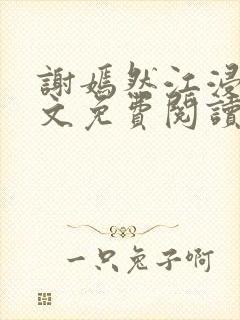 謝嫣然江浸
文免費閱讀
一只兔子啊